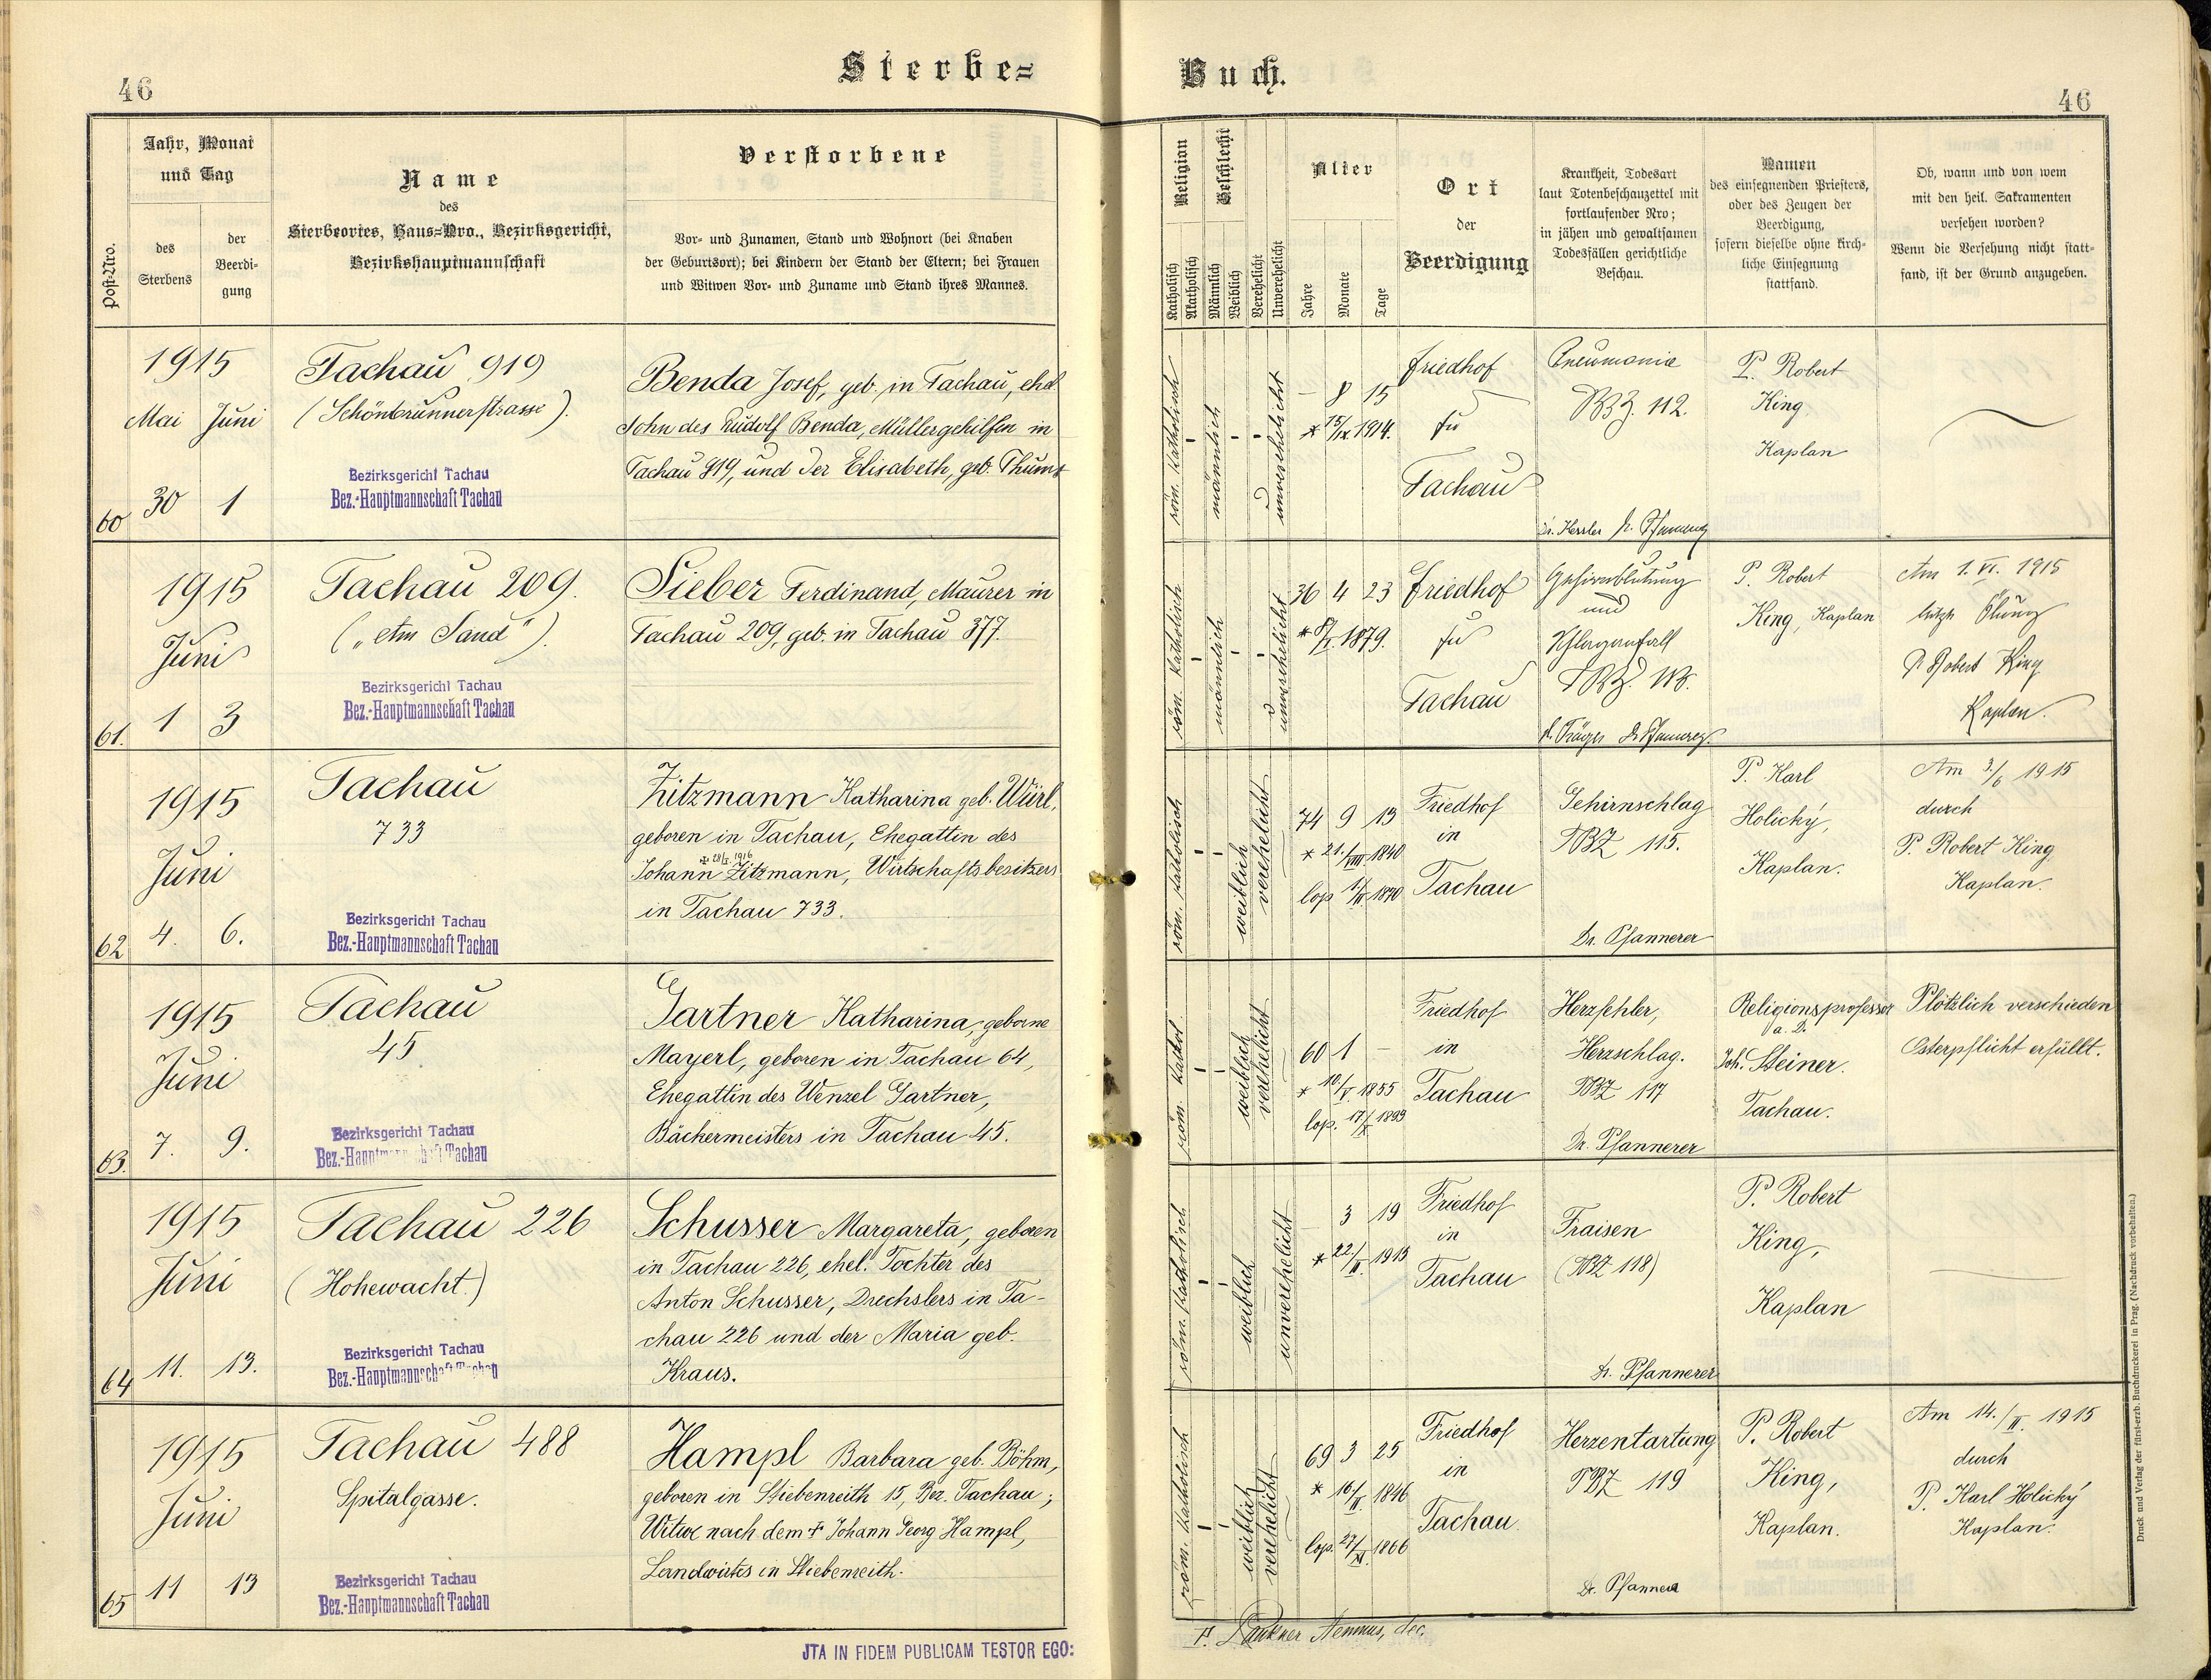 46
Sterbe=
Post-Nro.
Jahr, Monat
und Tag
des
Sterbens
der
Beerdi-
gung
Name
des
Sterbeortes, Haus=Nro., Bezirksgericht,
Bezirkshauptmannschaft
Verstorbene
Vor- und Zunamen, Stand und Wohnort (bei Knaben
der Geburtsort); bei Kindern der Stand der Eltern; bei Frauen
und Witwen Vor- und Zuname und Stand ihres Mannes.
60
1915
Mai Juni
30 1
Tachau 919
(Schönbrunnerstrasse).
Bezirksgericht Tachau
Bez.-Hauptmannschaft Tachau
Benda Josef, geb. in Tachau, ehel.
Sohn des Rudolf Benda, Müllergehilfen in
Tachau 919, und der Elisabeth, geb. Thums
61.
1915
Juni
1 3
Tachau 209.
("Am Sand").
Bezirksgericht Tachau
Bez.-Hauptmannschaft Tachau
Sieber Ferdinand, Maurer in
Tachau 209, geb. in Tachau 377.
62
1915
Juni
4. 6.
Tachau
733
Bezirksgericht Tachau
Bez.-Hauptmannschaft Tachau
Zitzmann Katharina geb. Würl,
geboren in Tachau, Ehegattin des
Johann Zitzmann, Wirtschaftsbesitzers
in Tachau 733.
63.
1915
Juni
7. 9.
Tachau
45
Bezirksgericht Tachau
Bez.-Hauptmannschaft Tachau
Gartner Katharina, geborne
Mayerl, geboren in Tachau 64,
Ehegattin des Wenzel Gartner,
Bäckermeisters in Tachau 45.
64
1915
Juni
11. 13.
Tachau 226
(Hohewacht.)
Bezirksgericht Tachau
Bez.-Hauptmannschaft Tachau
Schusser Margareta, geboren
in Tachau 226, ehel. Tochter des
Anton Schusser, Drechslers in Ta-
chau 226 und der Maria geb.
Kraus.
65
1915
Juni
11 13
Tachau 488
Spitalgasse.
Bezirksgericht Tachau
Bez.-Hauptmannschaft Tachau
Hampl Barbara geb. Böhm,
geboren in Stiebenreith 15, Bez. Tachau;
Witwe nach dem † Johann Georg Hampl,
Landwirtes in Stiebenreith.
JTA IN FIDEM PUBLICAM TESTOR EGO:
Buch.
46
Religion
Katholisch
Akatholisch
Geschlecht
Männlich
Weiblich
Verehelicht
Unverehelicht
Alter
Jahre
Monate
Tage
Ort
der
Beerdigung
Krankheit, Todesart
laut Totenbeschauzettel mit
fortlaufender Nro;
in jähen und gewaltsamen
Todesfällen gerichtliche
Beschau.
Namen
des einsegnenden Priesters,
oder des Zeugen der
Beerdigung,
sofern dieselbe ohne kirch-
liche Einsegnung
stattfand.
Ob, wann und von wem
mit den heil. Sakramenten
versehen worden?
Wenn die Versehung nicht statt-
fand, ist der Grund anzugeben.
röm. katholisch
männlich
unverehelicht
– 8 15
* 15/IX 1914.
Friedhof
zu
Tachau
Pneumonie
TBZ. 112.
P. Robert
King
Kaplan
röm. katholisch
männlich
unverehelicht
36 4 23
1879.
Friedhof
zu
Tachau
Gehirnblutung
und
Schlaganfall
P. Robert
King, Kaplan
Am 1. VI. 1915
letzte Ölung
P. Robert King
Kaplan.
röm. katholisch
weiblich
verehelicht
74 9 13
* 21./VIII 1840
Friedhof
in
Tachau
Gehirnschlag
TBZ 115.
Dr. Pfannerer
P. Karl
Holický,
Kaplan.
Am 3./6 1915
durch
P. Robert King
Kaplan.
röm. kathol.
weiblich
verehelicht
60 1 –
* 10./V. 1855
Friedhof
in
Tachau
Herzfehler,
Herzschlag.
TBZ 117
Dr. Pfannerer
Religionsprofessor
Joh. Steiner.
Tachau.
Plötzlich verschieden
Osterpflicht erfüllt.
röm. katholisch
weiblich
unverehelicht
3 19
Friedhof
in
Tachau
Fraisen
(TBZ 118)
Dr. Pfannerer
P. Robert
King,
Kaplan
röm. katholisch
weiblich
verehelicht
69 3 25
* 16/II. 1846
lop. 27/XI. 1866
Friedhof
in
Tachau.
Herzentartung
TBZ 119
Dr. Pfannerer
P. Robert
King,
Kaplan.
Am 14./II. 1915
durch
P. Karl Holický
Kaplan.
Druck und Verlag der fürst-erzb. Buchdruckerei in Prag. (Nachdruck vorbehalten.)